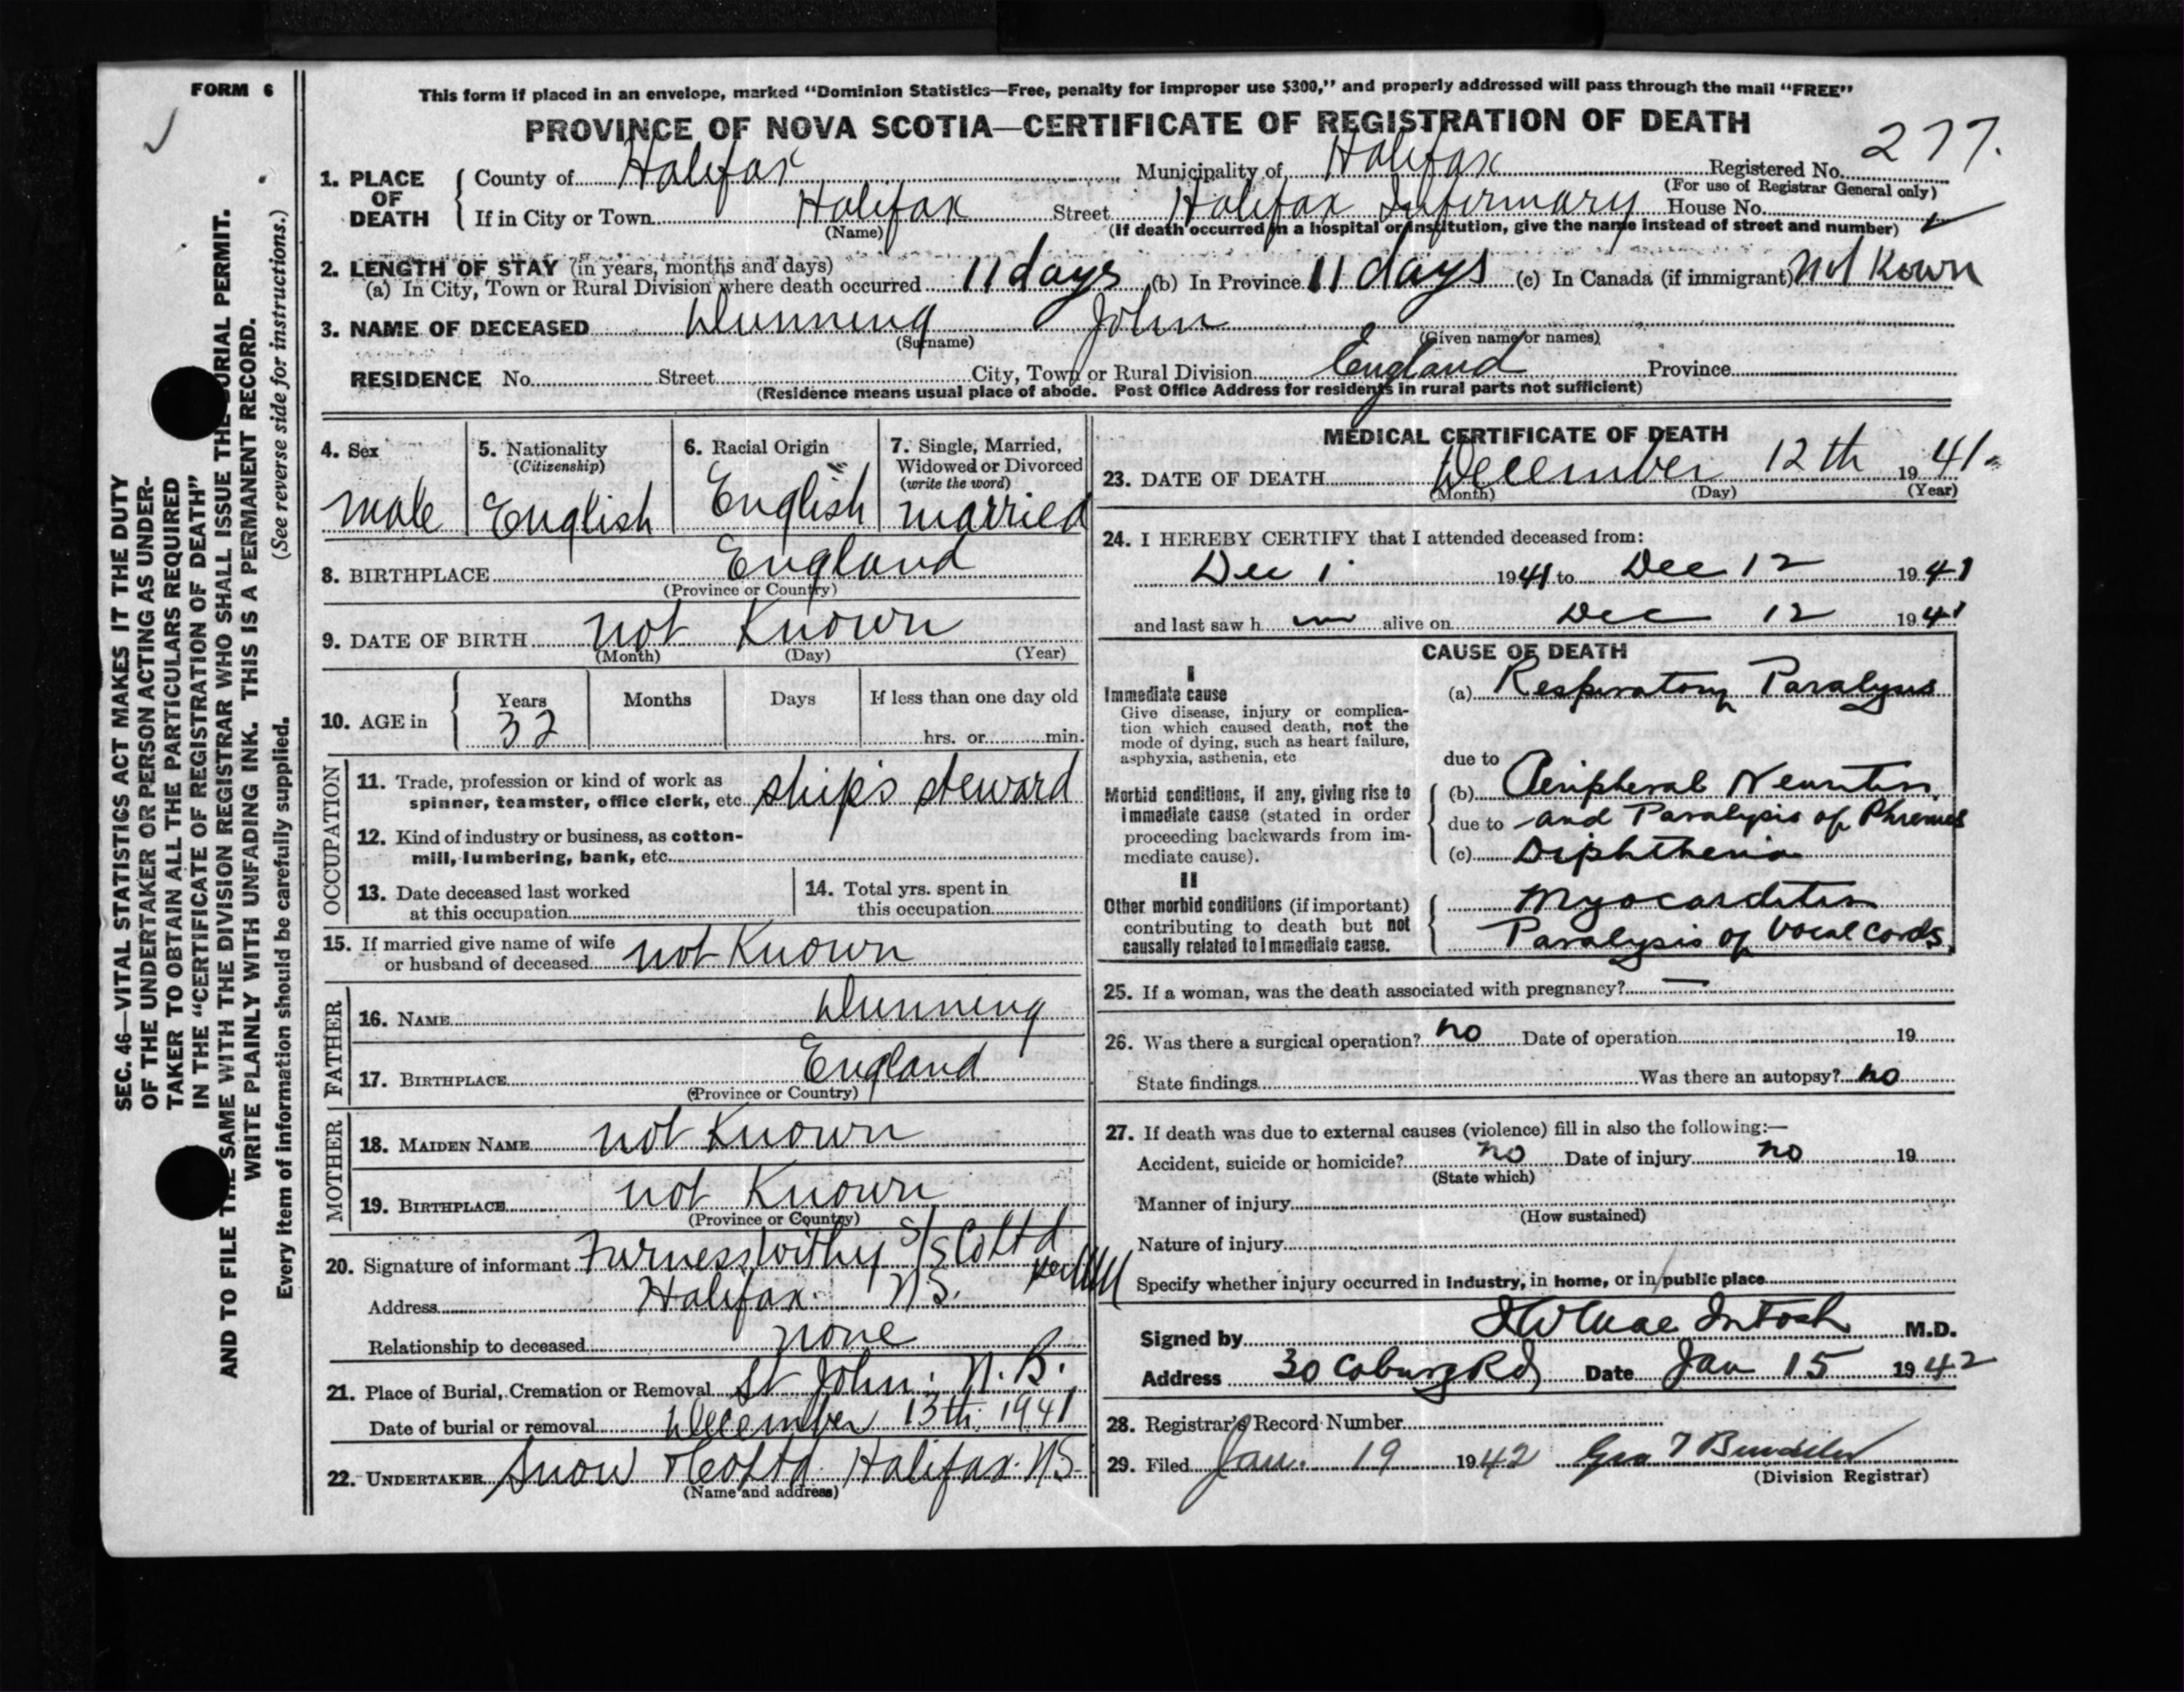 FORM 6
This form if placed in an envelope, marked "Dominion Statistics—Free, penalty for improper use $300," and properly addressed will pass through the mail "FREE"
PROVINCE OF NOVA SCOTIA—CERTIFICATE OF REGISTRATION OF DEATH
277.
1. PLACE OF DEATH County of Halifax Municipality of Halifax Registered No.
(For use of Registrar General only)
If in City or Town Halifax Street Halifax Infirmary House No.
(Name) (If death occurred in a hospital or institution, give the name instead of street and number)
2. LENGTH OF STAY (in years, months and days)
(a) In City, Town or Rural Division where death occurred 11 days (b) In Province 11 days (c) In Canada (if immigrant) not Kown
3. NAME OF DECEASED Dunning John
(Surname) (Given name or names)
RESIDENCE No. Street City, Town or Rural Division England Province
(Residence means usual place of abode. Post Office Address for residents in rural parts not sufficient)
4. Sex 5. Nationality 6. Racial Origin 7. Single, Married,
(Citizenship) Widowed or Divorced
(write the word)
male English English married
8. BIRTHPLACE England
(Province or Country)
9. DATE OF BIRTH not Known
(Month) (Day) (Year)
10. AGE in Years Months Days If less than one day old
32 hrs. or min.
OCCUPATION
11. Trade, profession or kind of work as
spinner, teamster, office clerk, etc. ship's steward
12. Kind of industry or business, as cotton-
mill, lumbering, bank, etc.
13. Date deceased last worked
at this occupation
14. Total yrs. spent in
this occupation
15. If married give name of wife
or husband of deceased not Known
FATHER
16. NAME Dunning
17. BIRTHPLACE England
(Province or Country)
MOTHER
18. MAIDEN NAME not Known
19. BIRTHPLACE not Known
(Province or Country)
20. Signature of informant Furness Withy S/S Co Ltd
per
Address Halifax N.S.
Relationship to deceased none
21. Place of Burial, Cremation or Removal St John. N.B.
Date of burial or removal December 13th 1941
22. UNDERTAKER Snow & Co Ltd Halifax. N.S.
(Name and address)
MEDICAL CERTIFICATE OF DEATH
23. DATE OF DEATH December 12th 1941.
(Month) (Day) (Year)
24. I HEREBY CERTIFY that I attended deceased from:
Dec 1 1941 to Dec 12 1941
and last saw h im alive on Dec 12 1941
CAUSE OF DEATH
I
Immediate cause (a) Respiratory Paralysis
Give disease, injury or complica-
tion which caused death, not the
mode of dying, such as heart failure,
asphyxia, asthenia, etc
due to
Morbid conditions, if any, giving rise to (b) Peripheral Neuritis
immediate cause (stated in order due to and Paralysis of Phrenics
proceeding backwards from im-
mediate cause). (c) Diphtheria
II
Other morbid conditions (if important) Myocarditis
contributing to death but not
causally related to immediate cause. Paralysis of vocal cords
25. If a woman, was the death associated with pregnancy? —
26. Was there a surgical operation? no Date of operation 19
State findings Was there an autopsy? no
27. If death was due to external causes (violence) fill in also the following:—
Accident, suicide or homicide? no Date of injury no 19
(State which)
Manner of injury
(How sustained)
Nature of injury
Specify whether injury occurred in industry, in home, or in public place
Signed by Mac Intosh M.D.
Address 30 Coburg Rd Date Jan 15 1942
28. Registrar's Record Number
29. Filed Jan. 19 1942 Geo
(Division Registrar)
SEC. 46—VITAL STATISTICS ACT MAKES IT THE DUTY
OF THE UNDERTAKER OR PERSON ACTING AS UNDER-
TAKER TO OBTAIN ALL THE PARTICULARS REQUIRED
IN THE "CERTIFICATE OF REGISTRATION OF DEATH"
AND TO FILE THE SAME WITH THE DIVISION REGISTRAR WHO SHALL ISSUE THE BURIAL PERMIT.
WRITE PLAINLY WITH UNFADING INK. THIS IS A PERMANENT RECORD.
Every item of information should be carefully supplied. (See reverse side for instructions.)